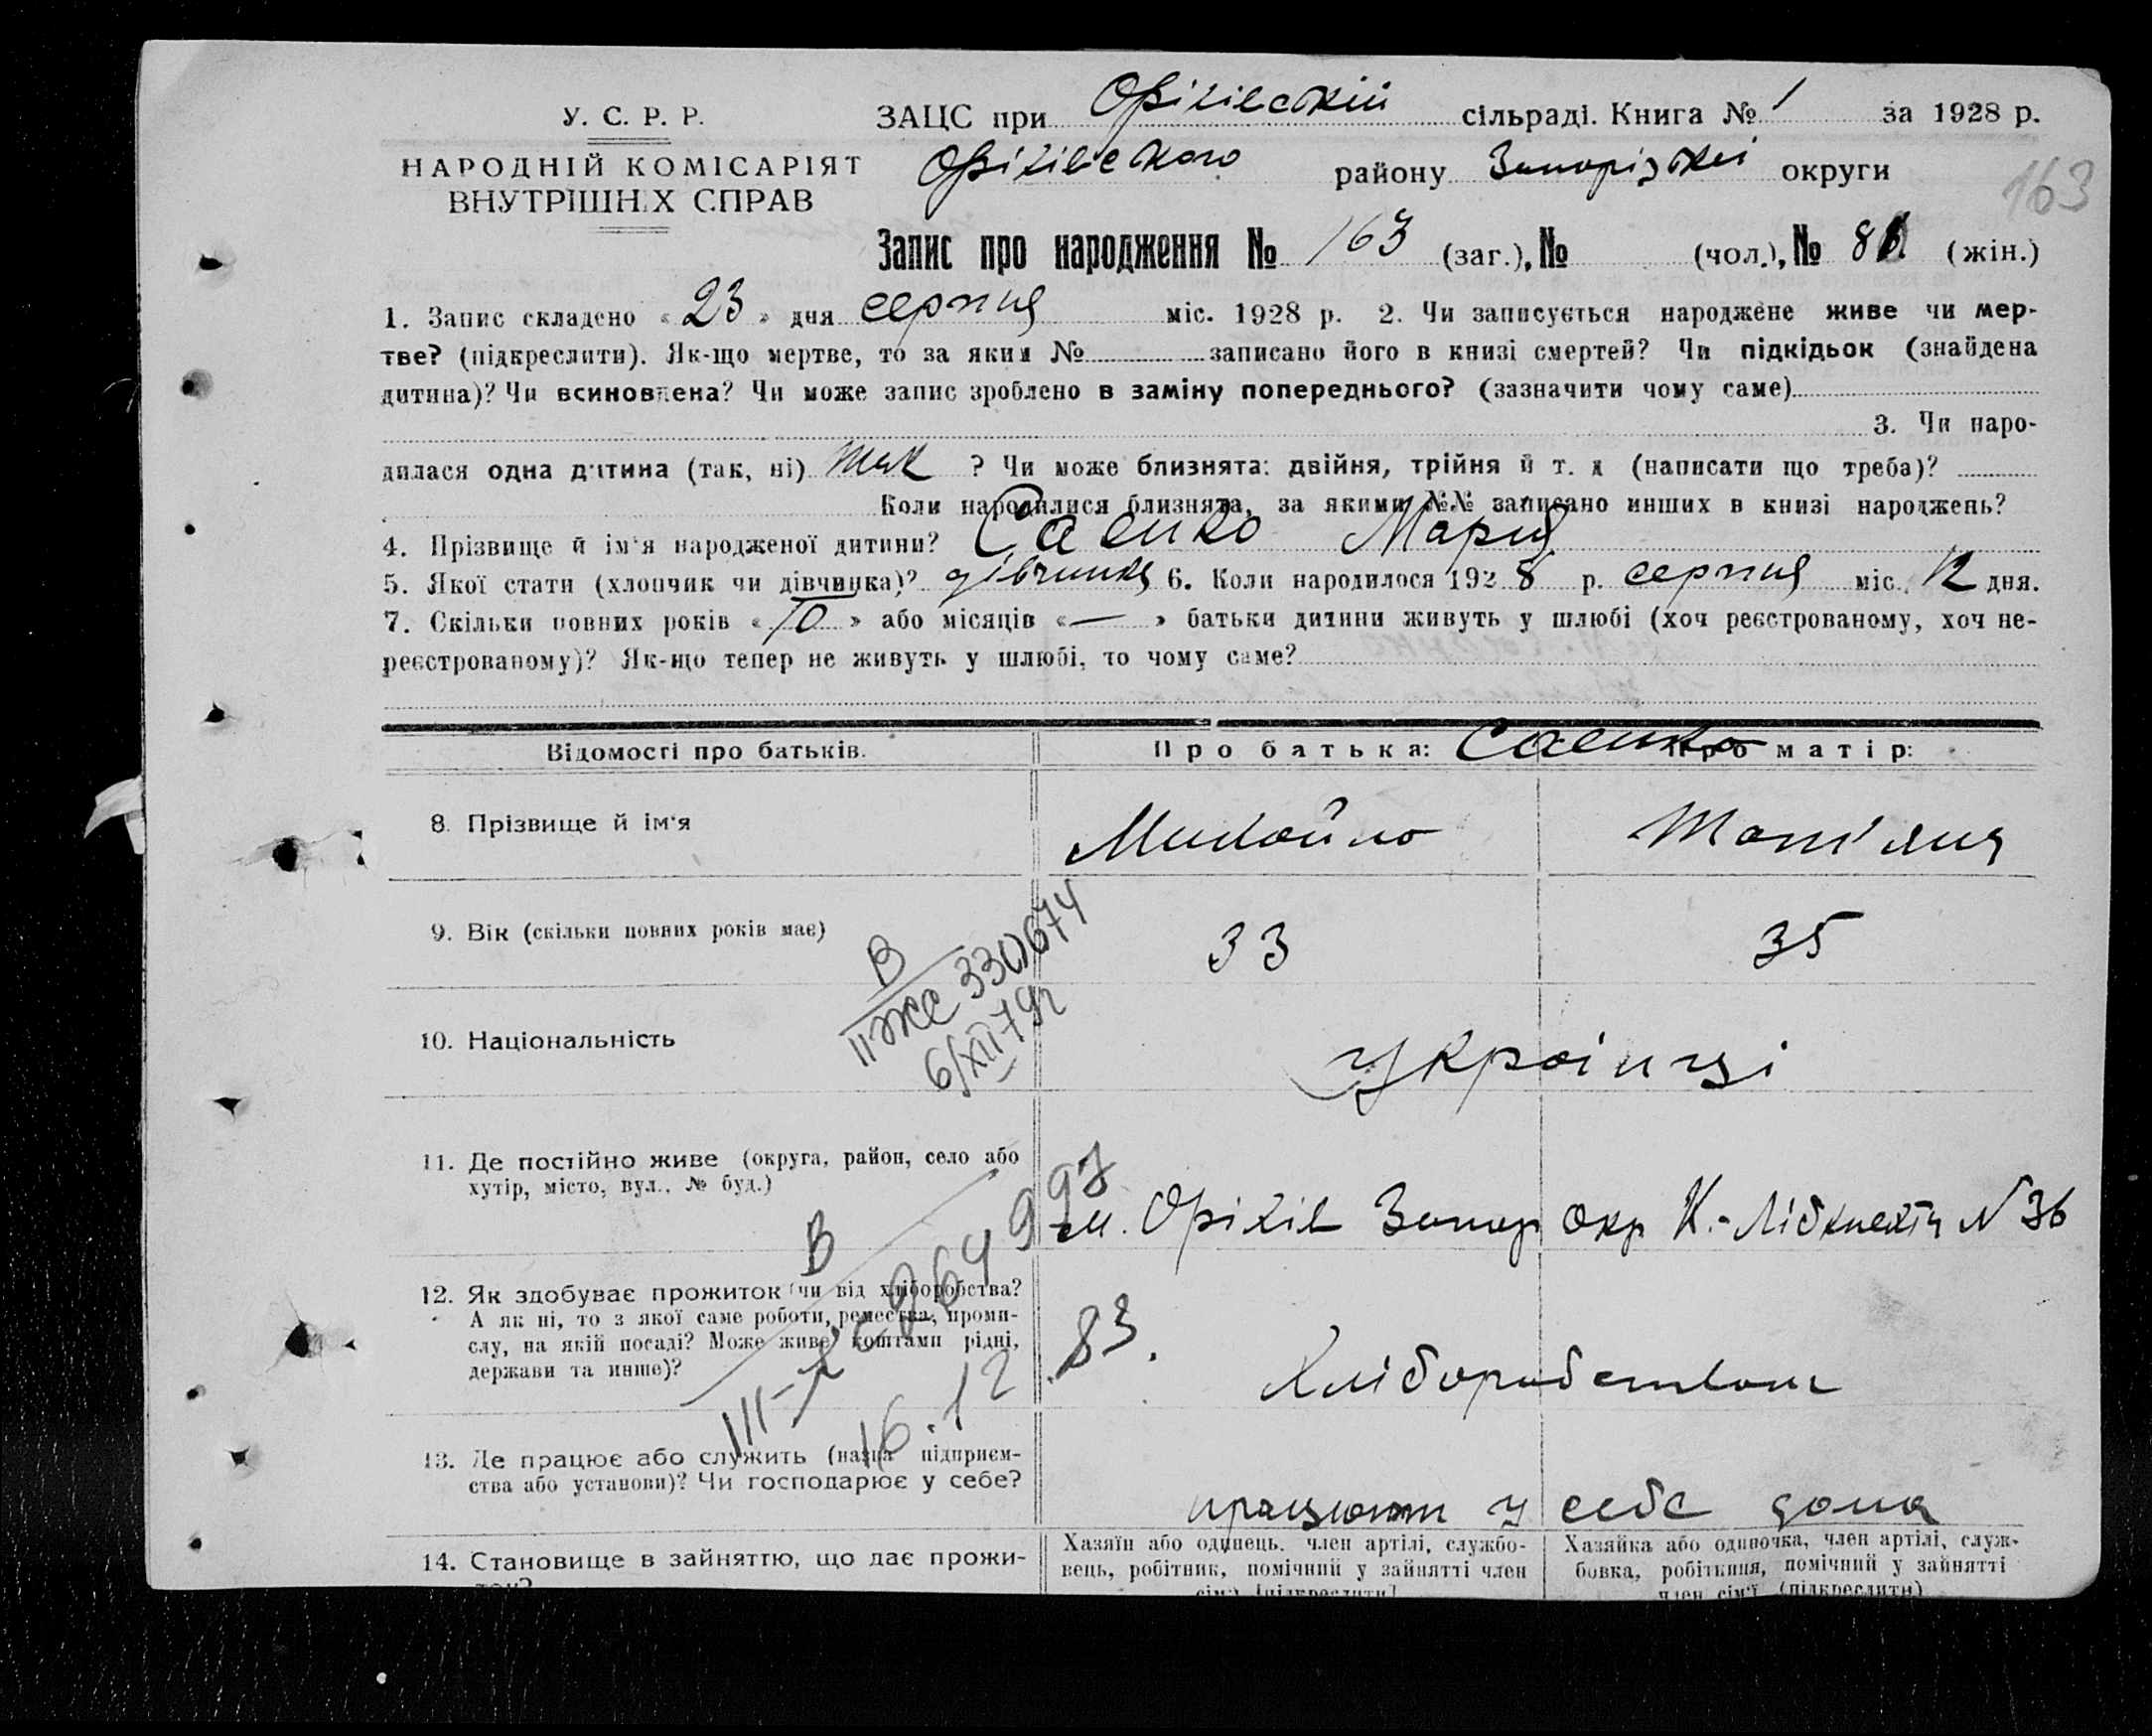 У. С. Р. Р.
НАРОДНІЙ КОМІСАРІЯТ
ВНУТРІШНІХ СПРАВ
ЗАЦС при Оріхівській сільраді. Книга № 1 за 1928 р.
Оріхівського району Запорізької округи
163
Запис про народження № 163 (заг.), № (чол.), № 81 (жін.)
1. Запис складено «23» дня серпня міс. 1928 р. 2. Чи записується народжене живе чи мер-
тве? (підкреслити). Як-що мертве, то за яким № записано його в книзі смертей? Чи підкідьок (знайдена
дитина)? Чи всиновлена? Чи може запис зроблено в заміну попереднього? (зазначити чому саме)
3. Чи наро-
дилася одна дитина (так, ні) так ? Чи може близнята: двійня, трійня й т. д (написати що треба)?
Коли народилися близнята, за якими №№ записано инших в книзі народжень?
4. Прізвище й ім'я народженої дитини? Саенко Мария
5. Якої стати (хлопчик чи дівчинка)? дівчинка 6. Коли народилося 1928 р. серпня міс. 12 дня.
7. Скільки повних років «10» або місяців «—» батьки дитини живуть у шлюбі (хоч реєстрованому, хоч не-
реєстрованому)? Як-що тепер не живуть у шлюбі, то чому саме?
Відомості про батьків. Про батька: Саенко Про матір:
8. Прізвище й ім'я Михайло Тат'яна
9. Вік (скільки повних років має) 33 35
В
II же 330674
6/XII 79г
10. Національність українці
11. Де постійно живе (округа, район, село або
хутір, місто, вул., № буд.)
м. Оріхів Запор окр К.-Лібкнехта N 36
В
12. Як здобуває прожиток (чи від хліборобства?
А як ні, то з якої саме роботи, ремества, проми-
слу, на якій посаді? Може живе коштами рідні,
держави та инше)?
Хліборобством
16.12 83.
13. Де працює або служить (назва підприєм-
ства або установи)? Чи господарює у себе?
працюют у себе дома
14. Становище в зайняттю, що дає прожи-
ток?
Хазяїн або одинець. член артілі, службо-
вець, робітник, помічний у зайнятті член
сім'ї [підкреслити]
Хазяйка або одиночка, член артілі, служ-
бовка, робітниця, помічний у зайнятті
член сім'ї (підкреслити)